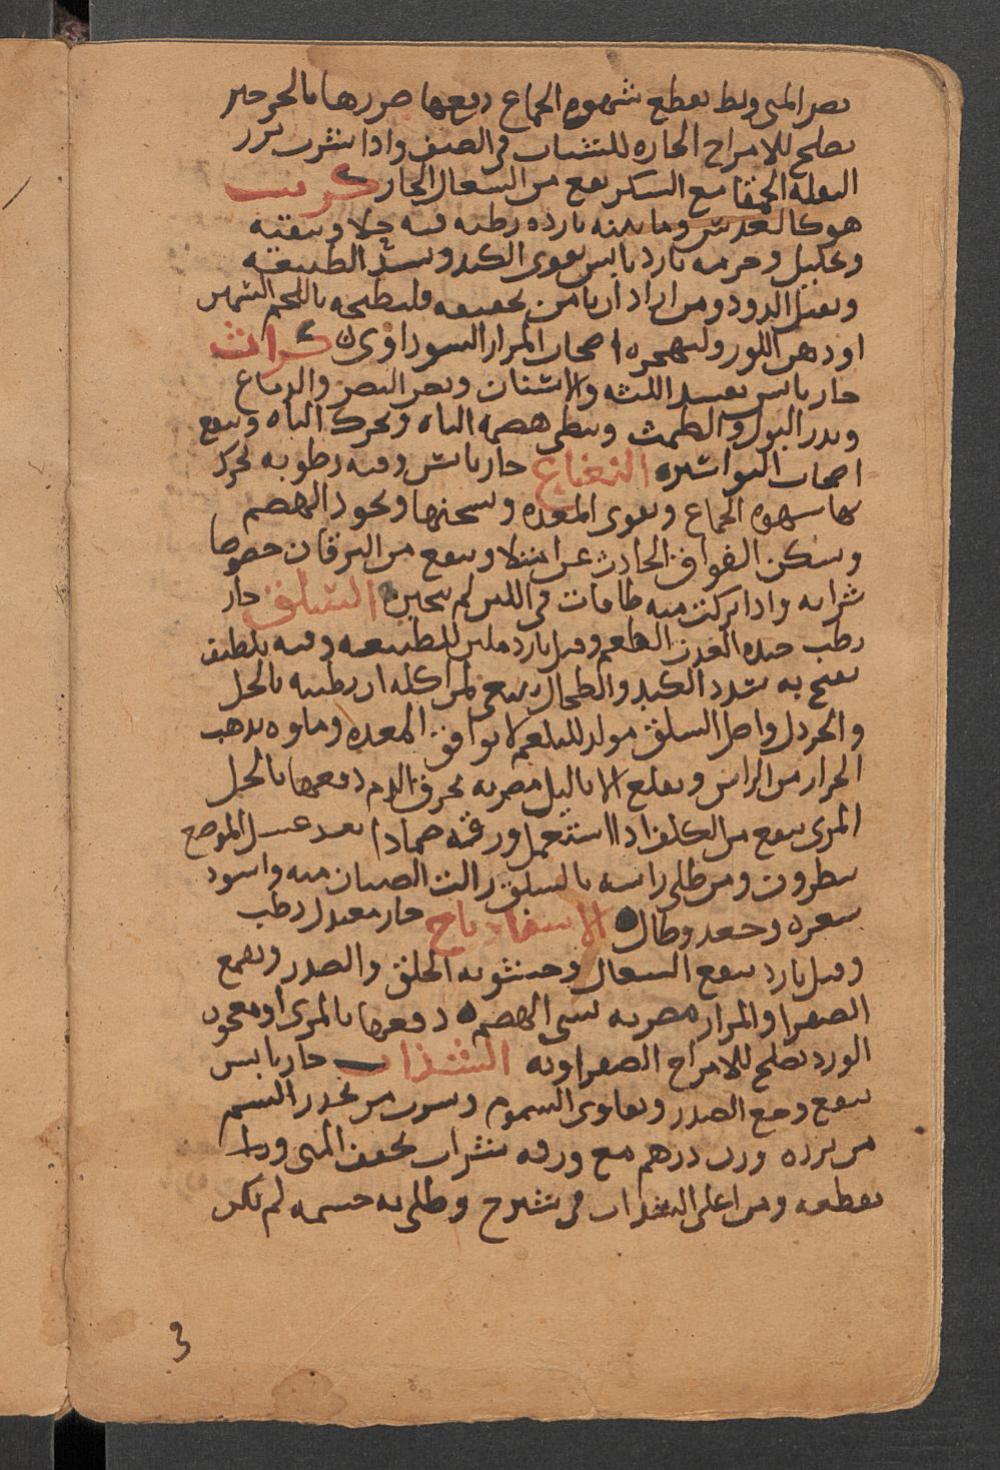 تضر المنى وتقطع شهوة الجماع دفعها ضررها بالجرجير
تصلح للامزاج الحاره للشباب فى الصيف واذا شرب بزر
البقله الحمقا مع السكر نفع من السعال الحار كرنب
هو كالعدس وما يشبه بارده رطبه فيه جلا وتنقيه
وتحليل وجرمه بارد يابس يقوى الكبد ويشد الطبيعه
ويقتل الدود ومن اراد ان يامن تجفيفه فليطبخه باللحم السمين
او دهن اللوز وليهجره اصحاب المرار السوداوى كراث
حار يابس يفسد اللثه والاسنان ويضر البصر والدماغ
ويدر البول والطمث وبطى هضمه الباه ويحرك الباه وينفع
اصحاب البواسير النعناع حار يابس وفيه رطوبه تحرك
بها شهوة الجماع ويقوى المعده ويسخنها ويجود الهضم
ويسكن الفواق الحادث عن امتلا وينفع من اليرقان خصوصا
شرابه واذا تركت منه طاقات فى اللبن لم يتجبن السلق حار
رطب جيده العذب الطعم وقيل بارد ملين للطبيعه وفيه تلطيف
تفتح به سدد الكبد والطحال ينبغى لمن اكله ان يطيبه بالخل
والخردل واصل السلق مولد للبلغم لا يوافق المعده وماوه يذهب
الحزاز من الراس ويقلع الاثاليل مضرته يحرق الدم دفعها بالخل
المرى ينفع من الكلف اذا استعمل ورقه ضمادا بعد غسل الموضع
بنطرون ومن طلى راسه بالسلق زالت الصيبان منه واسود
شعره وجعد وطال الاسفاناخ حار معتدل رطب
وقيل بارد ينفع السعال وخشونه الحلق والصدر ويقمع
الصفرا والمرار مضرته لسى الهضم دفعها بالمرى او معجون
الورد تصلح للامزاج الصفراويه السذاب حار يابس
ينفع وجع الصدر ويقاوى السموم وشرب من يحذر السم
من بزره وزن درهم مع ورقه بشراب يجفف المنى
يقطعه ومن اغلى السذاب فى شيرج وطلى به جسمه لم يكن
3